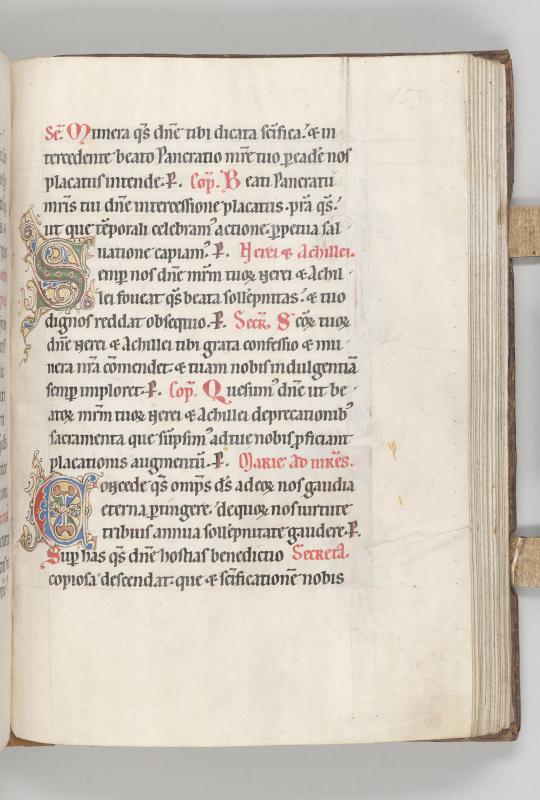 153
Sec̄. Munera qs̄ dn̄e tibi dicata scīfica. & in
tercedente beato Pancratio mr̄e tuo ꝑ eadē nos
placatus intende. P. Cop̄. Beati Pancratii
mr̄is tui dn̄e intercessione placatus. p̄ta qs̄.
ut que tēporali celebram᷒ actione. ꝑpetua sal
uatione capiam᷒. P. Nerei & Achillei.
Semp̄ nos dn̄e mr̄m tuoꝝ Nerei & Achil
lei foueat qs̄ beata sollēpnitas. & tuo
dignos reddat obsequio. P. Secr̄. Scōꝝ tuoꝝ
dn̄e Nerei & Achillei tibi grata confessio & mu
nera nr̄a cōmendet. & tuam nobis indulgentiā
semp̄ imploret. P. Cop̄. Quesum᷒ dn̄e ut be
atoꝝ mr̄m tuoꝝ Nerei & Achillei deprecationib᷒
sacramenta que sūpsim᷒ ad tue nobis ꝓficiant
placationis augmentū. P. Marie ad mr̄es.
Concede qs̄ omp̄s ds̄ ad eoꝝ nos gaudia
eterna ꝑtingere. de quoꝝ nos uirtute
tribuis annua sollēpnitate gaudere. P.
Sup̄ has qs̄ dn̄e hostias benedictio Secreta.
copiosa descendat. que & scīficationē nobis